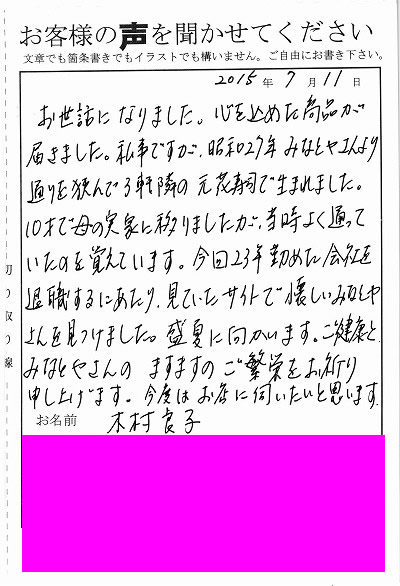 お客様の声を聞かせてください
文章でも箇条書きでもイラストでも構いません。ご自由にお書き下さい。
2015年 7月11日
お世話になりました。心を込めた商品が
届きました。私事ですが、昭和27年みなとやさんより
通りを挟んで3軒隣の元茂寿司で生まれました。
10才で母の実家に移りましたが、当時よく通って
いたのを覚えています。今回23年勤めた会社を
退職するにあたり、見ていたサイトで懐しいみなとや
さんを見つけました。盛夏に向かいます。ご健康と
みなとやさんの ますますのご繁栄をお祈り
申し上げます。今度はお店に伺いたいと思います。
お名前 木村良子
切り取り線